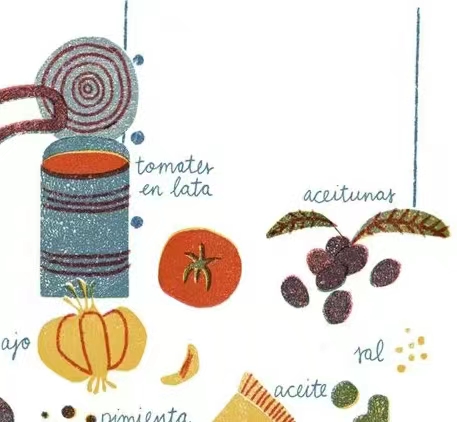 tomates
en lata
aceitunas
ajo
sal
aceite
pimienta